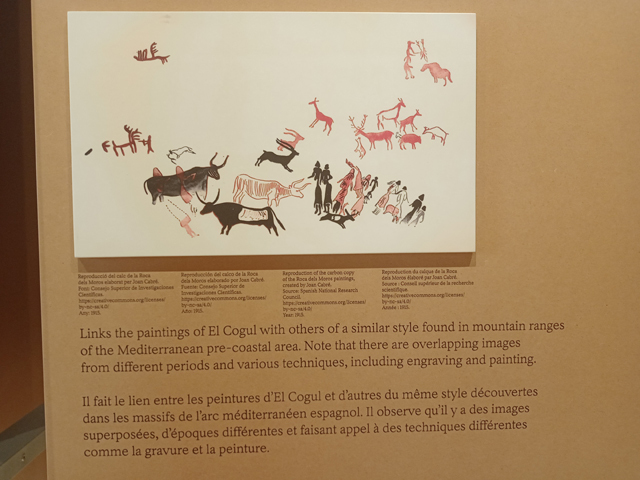 Reproducció del calc de la Roca
dels Moros elaborat per Joan Cabré.
Font: Consejo Superior de Investigaciones
Científicas.
https://creativecommons.org/licenses/
by-nc-sa/4.0/
Any: 1915.
Reproducción del calco de la Roca
dels Moros elaborado por Joan Cabré.
Fuente: Consejo Superior de
Investigaciones Científicas.
https://creativecommons.org/licenses/
by-nc-sa/4.0/
Año: 1915.
Reproduction of the carbon copy
of the Roca dels Moros paintings,
created by Joan Cabré.
Source: Spanish National Research
Council.
https://creativecommons.org/licenses/
by-nc-sa/4.0/
Year: 1915.
Reproduction du calque de la Roca
dels Moros élaboré par Joan Cabré.
Source : Conseil supérieur de la recherche
scientifique.
https://creativecommons.org/licenses/
by-nc-sa/4.0/
Année : 1915.
Links the paintings of El Cogul with others of a similar style found in mountain ranges
of the Mediterranean pre-coastal area. Note that there are overlapping images
from different periods and various techniques, including engraving and painting.
Il fait le lien entre les peintures d'El Cogul et d'autres du même style découvertes
dans les massifs de l'arc méditerranéen espagnol. Il observe qu'il y a des images
superposées, d'époques différentes et faisant appel à des techniques différentes
comme la gravure et la peinture.